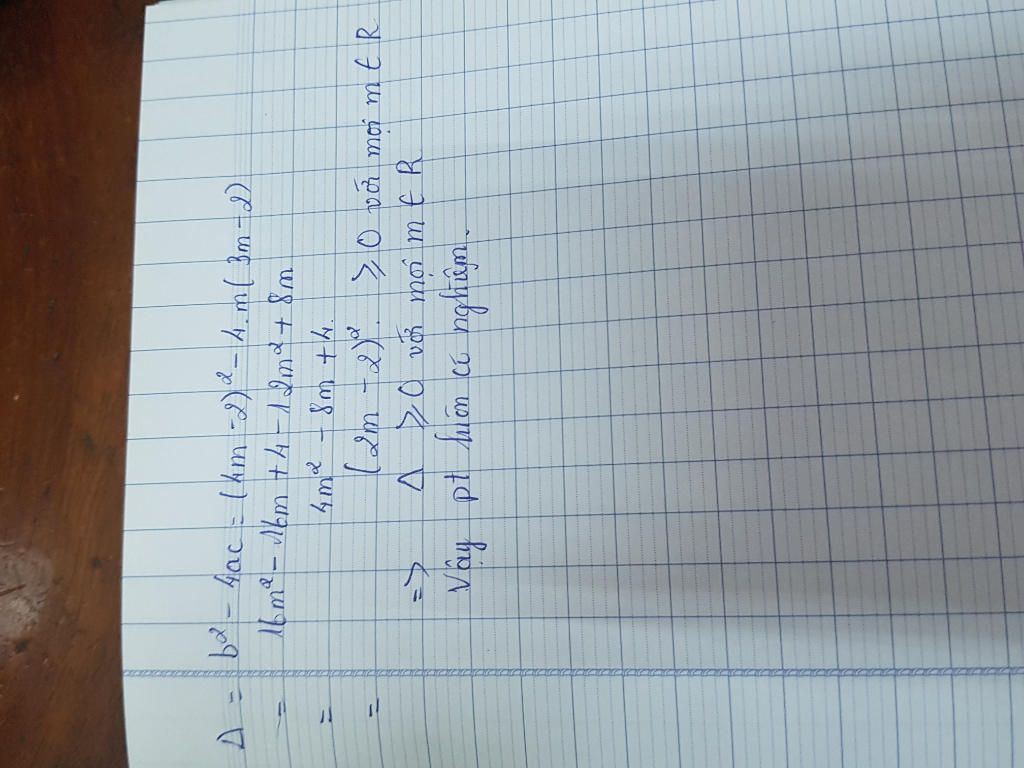 Δ = b² - 4ac = (4m - 2)² - 4.m(3m - 2)
= 16m² - 16m + 4 - 12m² + 8m
= 4m² - 8m + 4.
= (2m - 2)². ⩾ 0 với mọi m ∈ R
=> Δ ⩾ 0 với mọi m ∈ R
Vậy pt luôn có nghiệm.